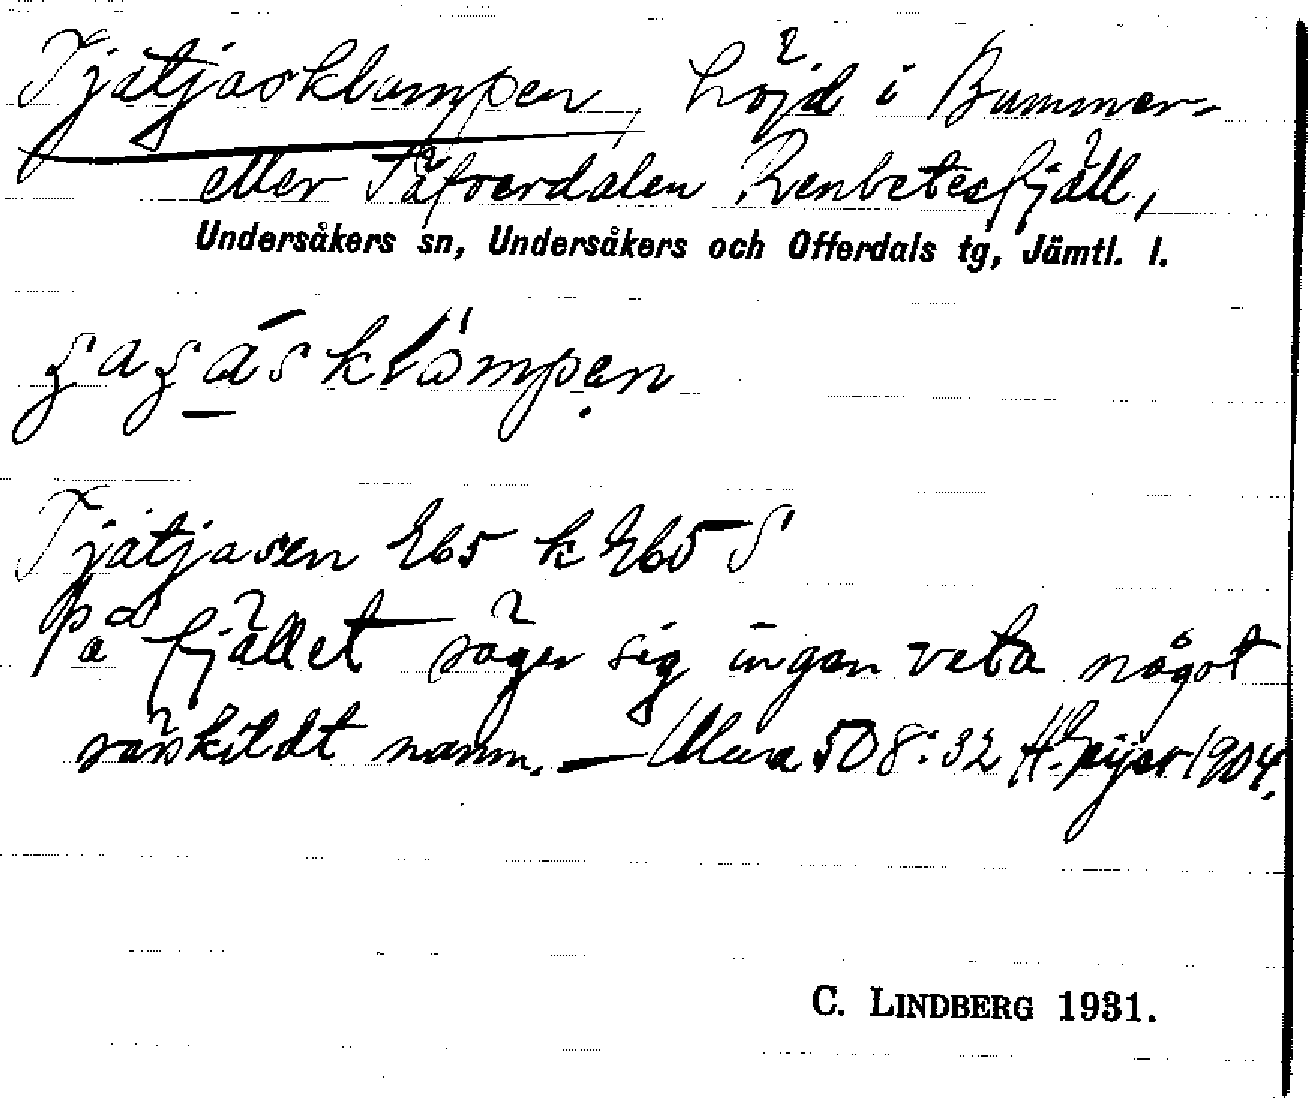 Tjatjasklumpen, höjd i Bummer-
eller Tåfverdalen Renbetesfjäll,
Undersåkers sn, Undersåkers och Offerdals tg, Jämtl. l.
Tjatjasen Eb5 k Eb5 S
på fjället säger sig ingen veta något
särskildt namn. — 508:32 H. Geijer 1904.
C. LINDBERG 1931.